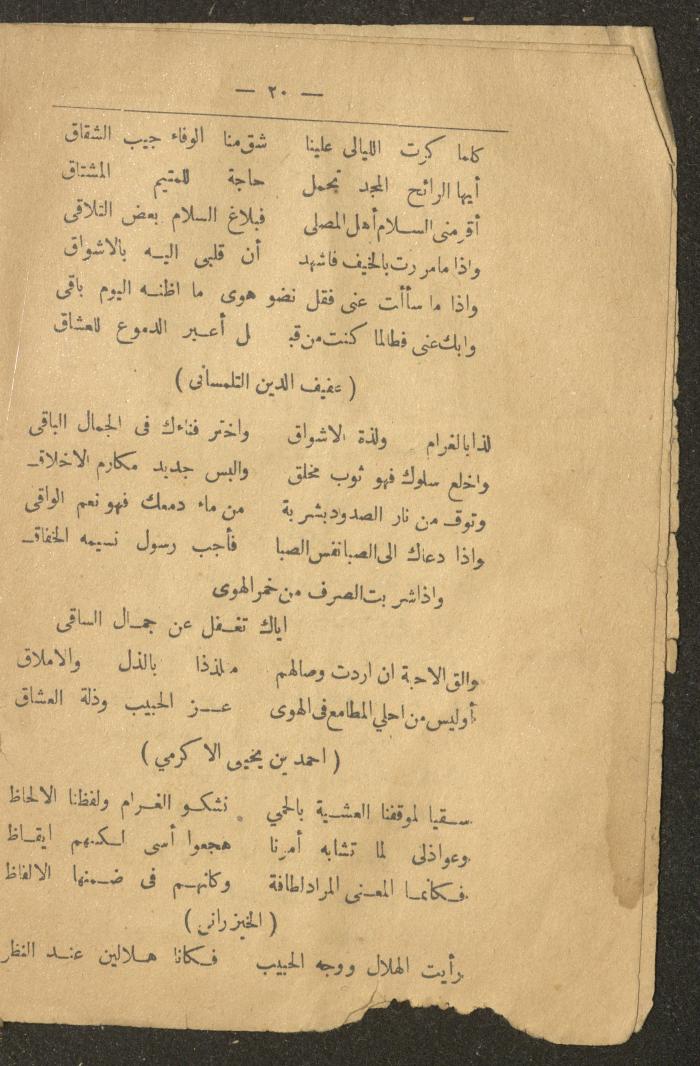 — ٢٠ —
كلما كرت الليالى علينا شق منا الوفاء جيب الشقاق
أيها الرائح المجد تحمل حاجة للمتيم المشتاق
أقر منى السلام أهل المصلى فبلاغ السلام بعض التلاقى
واذا ما مررت بالخيف فاشهد أن قلبى اليه بالاشواق
واذا ما سألت عنى فقل نضو هوى ما اظنه اليوم باقى
وابك عنى فطالما كنت من قبـ ل أعير الدموع للعشاق
( عفيف الدين التلمسانى )
لذا بالغرام ولذة الاشواق واختر فناءك فى الجمال الباقى
واخلع سلوك فهو ثوب مخلق والبس جديد مكارم الاخلاق
وتوق من نار الصدود بشربة من ماء دمعك فهو نعم الواقى
واذا دعاك الى الصبا نفس الصبا فأجب رسول نسيمه الخفاق
واذا شربت الصرف من خمر الهوى
اياك تغفل عن جمال الساقى
والق الاحبة ان اردت وصالهم متلذذا بالذل والاملاق
أوليس من احلي المطامع فى الهوى عز الحبيب وذلة العشاق
( احمد بن يحيى الاكرمي )
سقيا لموقفنا العشية بالحمي نشكو الغرام ولفظنا الالحاظ
وعواذلى لما تشابه أمرنا هجعوا أسى لكنهم ايقاظ
فكأنما المعنى المراد لطافة وكأنهم فى ضمنها الالفاظ
( الخيزرانى )
رأيت الهلال ووجه الحبيب فكانا هلالين عند النظر